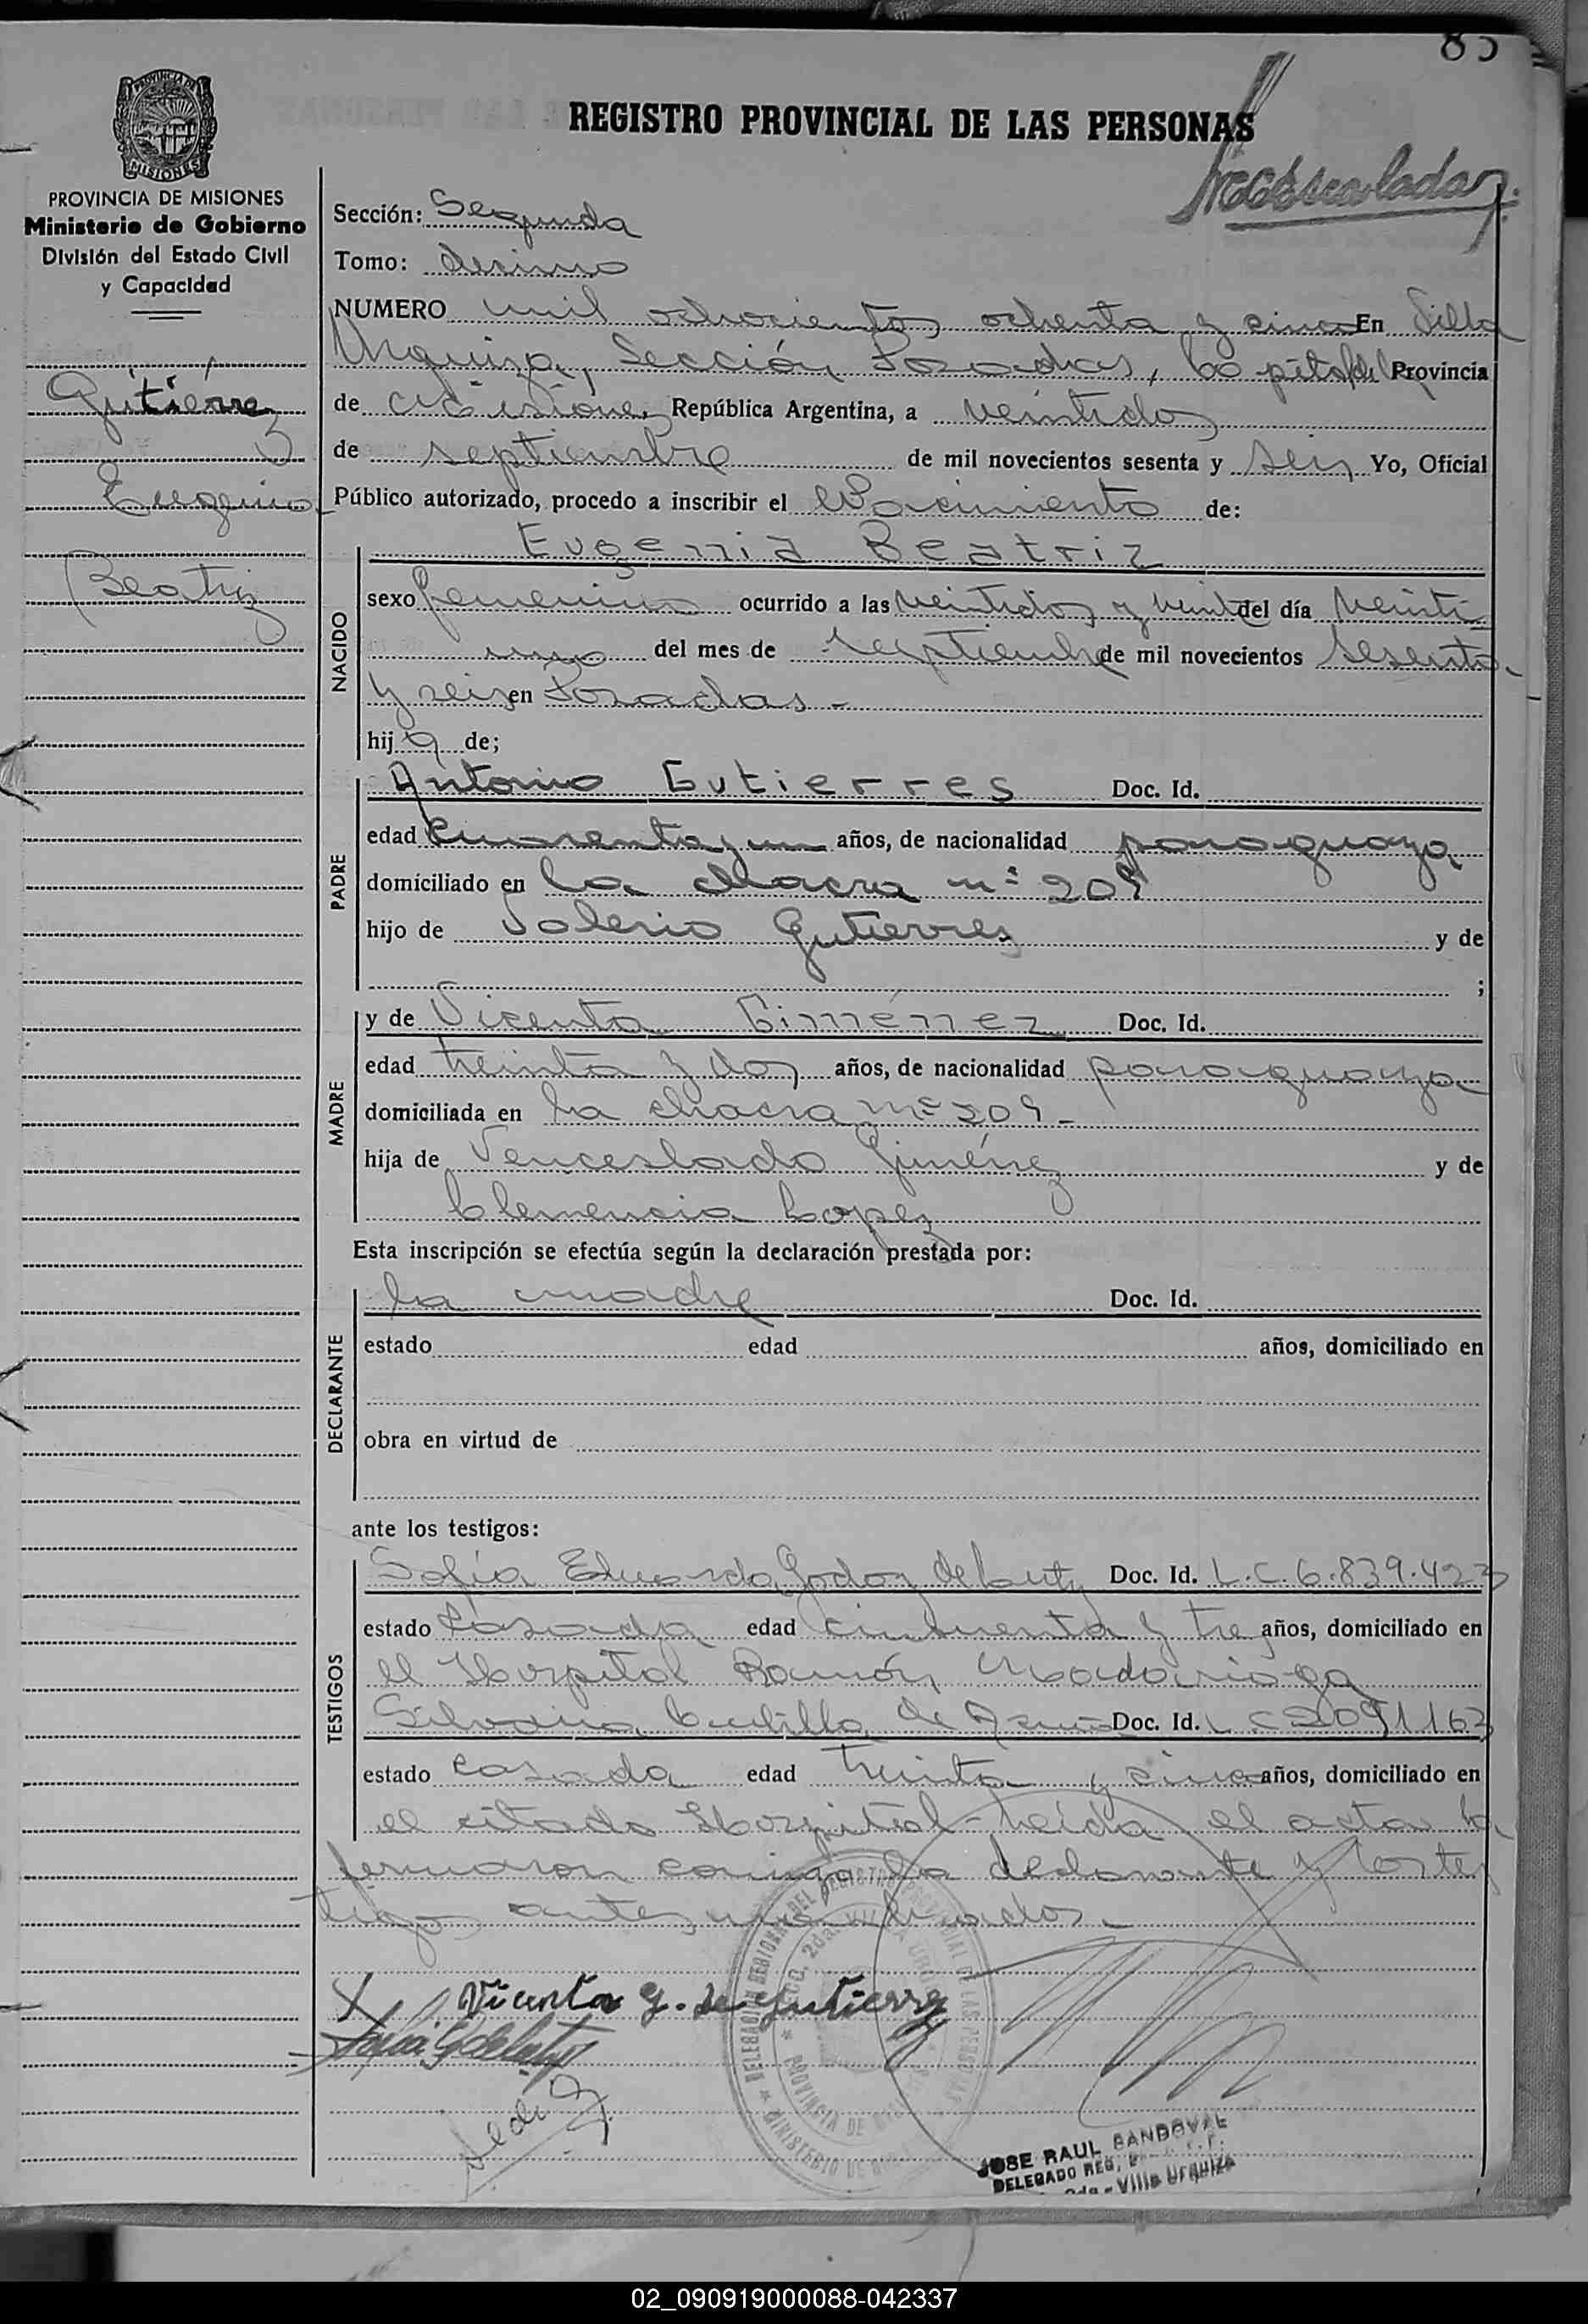 85
REGISTRO PROVINCIAL DE LAS PERSONAS
PROVINCIA DE MISIONES
MISIONES
PROVINCIA DE MISIONES
Ministerio de Gobierno
División del Estado Civil
y Capacidad
Gutiérrez
Eugenia
Beatriz
Sección: Segunda
Tomo: decimo
NUMERO mil ochocientos ochenta y cinco En Villa
Urquiza, Sección Posadas, Capital del Provincia
de Misiones República Argentina, a veintidos
de septiembre de mil novecientos sesenta y seis Yo, Oficial
Público autorizado, procedo a inscribir el Nacimiento de:
NACIDO
Eugenia Beatriz
sexo femenino ocurrido a las veintidos y veinte del día veinti
uno del mes de septiembre de mil novecientos sesenta
y seis en Posadas -
hij a de;
PADRE
Antonio Gutierres Doc. Id.
edad Cuarenta y un años, de nacionalidad paraguaya
domiciliado en La chacra nº 209
hijo de Valerio Gutierrez y de
;
MADRE
y de Vicenta Giménez Doc. Id.
edad treinta y dos años, de nacionalidad paraguaya
domiciliada en La chacra nº 209 -
hija de Venceslado Giménez y de
Clemencia Lopez
Esta inscripción se efectúa según la declaración prestada por:
DECLARANTE
La madre Doc. Id.
estado edad años, domiciliado en
obra en virtud de
ante los testigos:
TESTIGOS
Sofía Eduarda Godoy de Doc. Id. L.C. 6.839.423
estado Casada edad cincuenta y tres años, domiciliado en
el Hospital Ramón Madariaga
Silvana de Doc. Id. L C 2091163
estado casada edad treinta y cinco años, domiciliado en
el citado Hospital - Leída el acta la
firmaron conmigo la declarante y los tes
tigos antes
Vicenta G. de Gutierrez
JOSE RAUL SANDOVAL
DELEGADO REG.
2da - Villa Urquiza
02_090919000088-042337